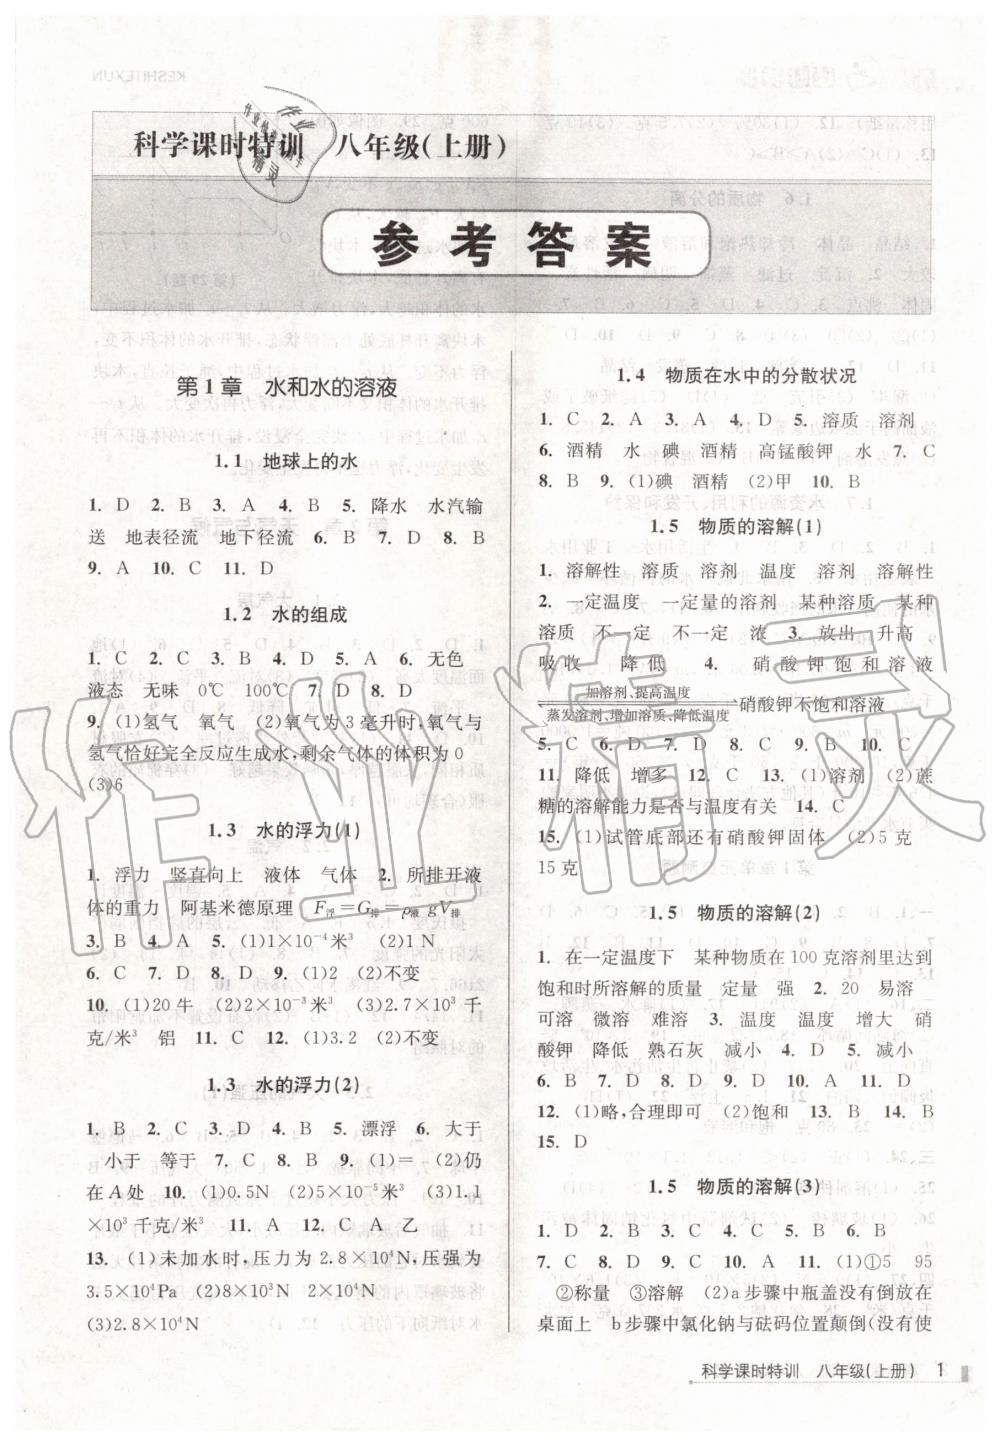 科学课时特训 八年级(上册)
参考答案
第1章 水和水的溶液
1.1 地球上的水
1. D 2. B 3. A 4. B 5. 降水 水汽输
送 地表径流 地下径流 6. B 7. D 8. B
9. A 10. C 11. D
1.2 水的组成
1. C 2. C 3. B 4. D 5. A 6. 无色
液态 无味 0℃ 100℃ 7. D 8. D
9. (1)氢气 氧气 (2)氧气为3毫升时,氧气与
氢气恰好完全反应生成水,剩余气体的体积为0
(3)6
1.3 水的浮力(1)
1. 浮力 竖直向上 液体 气体 2. 所排开液
体的重力 阿基米德原理 F浮=G排=ρ液gV排
3. B 4. A 5. (1)1×10⁻⁴米³ (2)1N
6. C 7. D 8. D 9. (1)2 (2)不变
10. (1)20牛 (2)2×10⁻³米³ (3)2.7×10³千
克/米³ 铝 11. C 12. (1)3.2 (2)不变
1.3 水的浮力(2)
1. B 2. C 3. D 4. B 5. 漂浮 6. 大于
小于 等于 7. C 8. B 9. (1)= (2)仍
在A处 10. (1)0.5N (2)5×10⁻⁵米³ (3)1.1
×10³千克/米³ 11. A 12. C A 乙
13. (1)未加水时,压力为2.8×10⁴N,压强为
3.5×10⁴Pa (2)8×10³N 2×10⁴N
(3)2.8×10⁴N
1.4 物质在水中的分散状况
1. C 2. A 3. A 4. D 5. 溶质 溶剂
6. 碘 酒精 水 碘 酒精 高锰酸钾 水 7. C
8. B 9. (1)碘 酒精 (2)甲 10. B
1.5 物质的溶解(1)
1. 溶解性 溶质 溶剂 温度 溶剂 溶解性
2. 一定温度 一定量的溶剂 某种溶质 某种
溶质 不一定 不一定 浓 3. 放出 升高
吸收 降低 4. 硝酸钾饱和溶液
加溶剂、提高温度
蒸发溶剂、增加溶质、降低温度
硝酸钾不饱和溶液
5. C 6. D 7. D 8. C 9. B 10. C
11. 降低 增多 12. C 13. (1)溶剂 (2)蔗
糖的溶解能力是否与温度有关 14. C
15. (1)试管底部还有硝酸钾固体 (2)5克
15克
1.5 物质的溶解(2)
1. 在一定温度下 某种物质在100克溶剂里达到
饱和时所溶解的质量 定量 强 2. 20 易溶
可溶 微溶 难溶 3. 温度 温度 增大 硝
酸钾 降低 熟石灰 减小 4. D 5. 减小
6. B 7. B 8. D 9. D 10. A 11. D
12. (1)略,合理即可 (2)饱和 13. B 14. B
15. D
1.5 物质的溶解(3)
1. D 2. B 3. C 4. C 5. B 6. B
7. C 8. D 9. C 10. A 11. (1)①5 95
②称量 ③溶解 (2)a步骤中瓶盖没有倒放在
桌面上 b步骤中氯化钠与砝码位置颠倒(没有使
科学课时特训 八年级(上册) 1